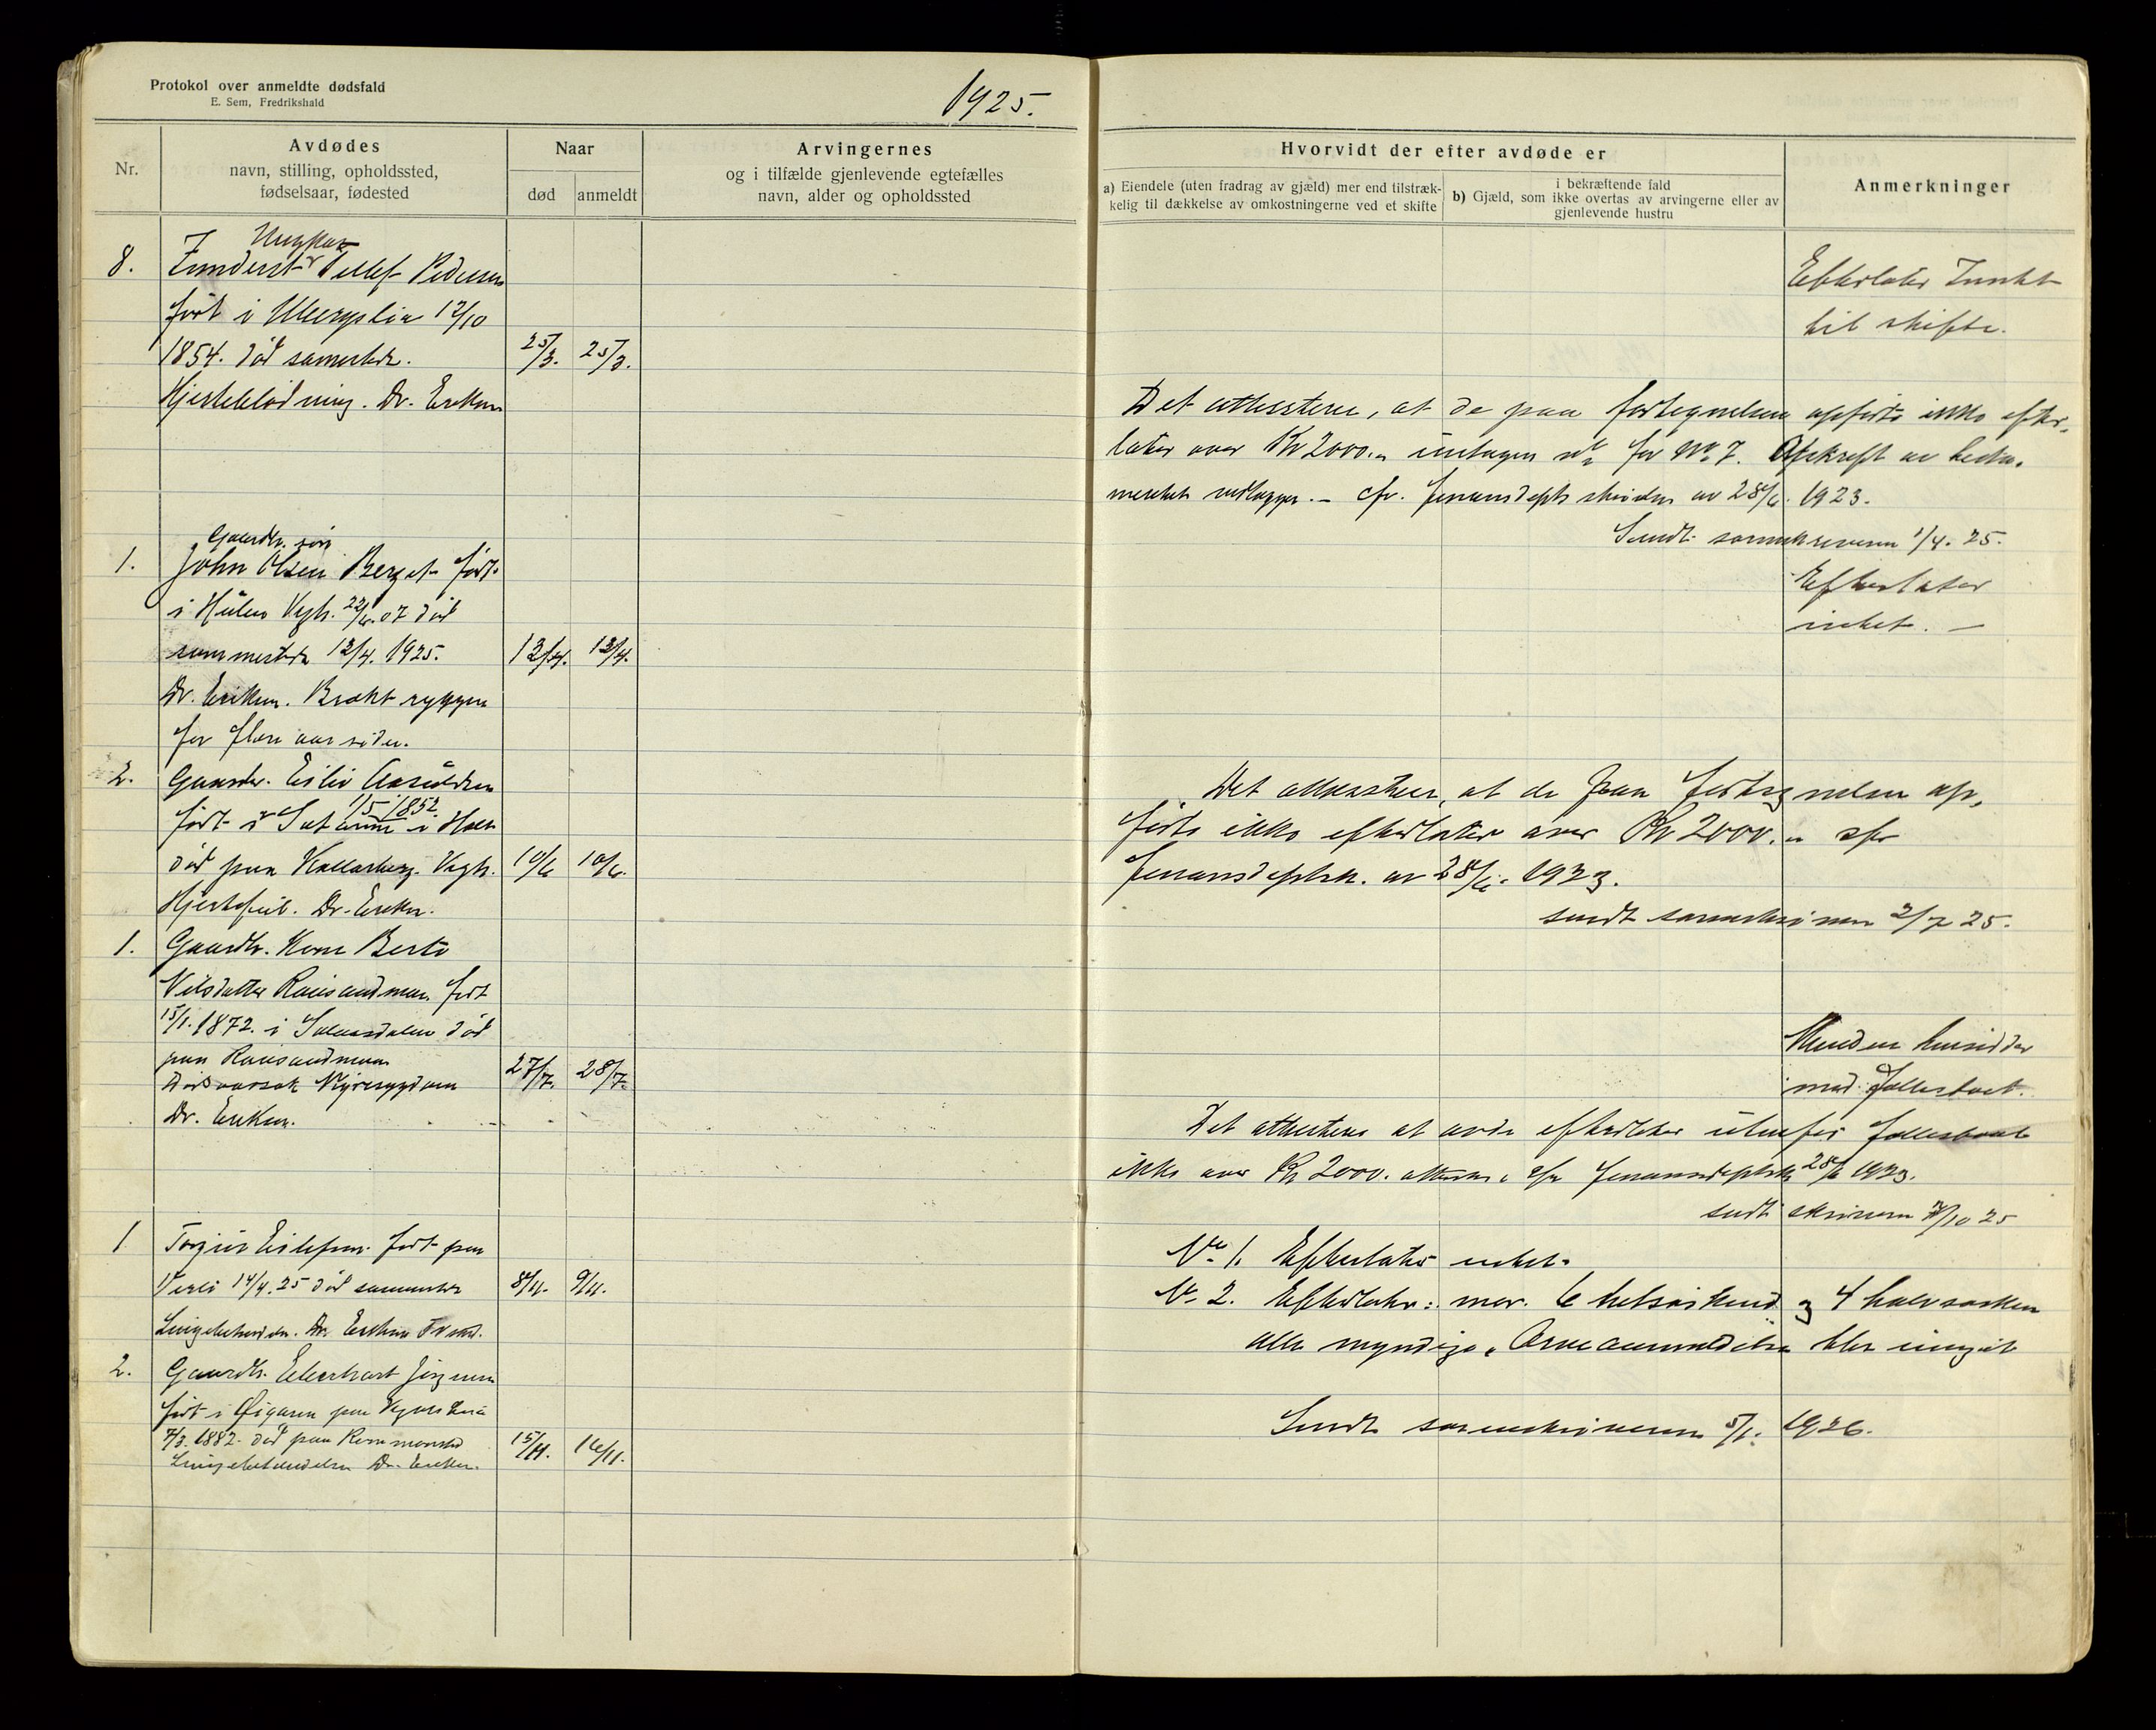 Protokol over anmeldte dødsfald
E. Sem, Fredrikshald
1925.
Nr.
Avdødes
navn, stilling, opholdssted,
fødselsaar, fødested
Naar
død
anmeldt
Arvingernes
og i tilfælde gjenlevende egtefælles
navn, alder og opholdssted
Hvorvidt der efter avdøde er
a) Eiendele (uten fradrag av gjæld) mer end tilstræk-
kelig til dækkelse av omkostningerne ved et skifte
i bekræftende fald
b) Gjæld, som ikke overtas av arvingerne eller av
gjenlevende hustru
Anmerkninger
Ungkar
8. Pedersen
født i 12/10
1854. død sammesteds. 25/3. 25/3.
Hjerteblødning. Dr. Eriksen
Efterlater Intet
til skifte.
Det attesteres, at de paa fortegnelsen opførte ikke efter-
later over Kr 2000.- undtagen for No 7. Afskrift av testa-
mentet vedlægges. - cfr. finansdepts skrivelse av 28/6. 1923.
Sendt sorenskriveren 1/4. 25.
Gaardbr. søn
1. John Olsen Berget født
i Vegh. 22/6.07 død
sammesteds 12/4. 1925. 12/4. 13/4.
Dr. Eriksen. Brækt ryggen
for flere aar siden.
Efterlater
intet. -
2. Gaardbr. Eiliv
1/5 1852
født i i Holt
død paa Vegh. 10/6 10/6.
Hjertefeil. Dr. Eriksen.
Det attesteres, at de paa fortegnelsen op-
førte ikke efterlater over Kr 2000.- cfr
Finansdeptsk. av 28/6. 1923.
sendt sorenskriveren 2/7 25.
1. Gaardbr. Kone Berte
Nilsdatter født
15/1. 1872. i død
paa 27/7. 28/7.
Dødsaarsak Nyresygdom
Dr. Eriksen.
Manden hensidder
med fællesboet.
Det attesteres at avdøde efterlater utenfor fællesboet
ikke over Kr 2000. cfr finansdeptsk 28/6 1923.
sendt skriveren 7/10 25
1 Torjus Eilefsen født paa
14/4. 25 død sammesteds 8/11. 9/11.
Lungebetændelse. Dr. Eriksen
No 1. Efterlater intet.
2. Gaardbr. Jørgensen
født i paa
7/3. 1882. død paa 15/11. 16/11.
Lungebetændelse Dr. Eriksen.
No 2. Efterlater: mor. 6 helsøskend og 4 halvsøsken
alle myndige. Arveanmeldelse blir inngit
Sendt sorenskriveren 5/1. 1926.